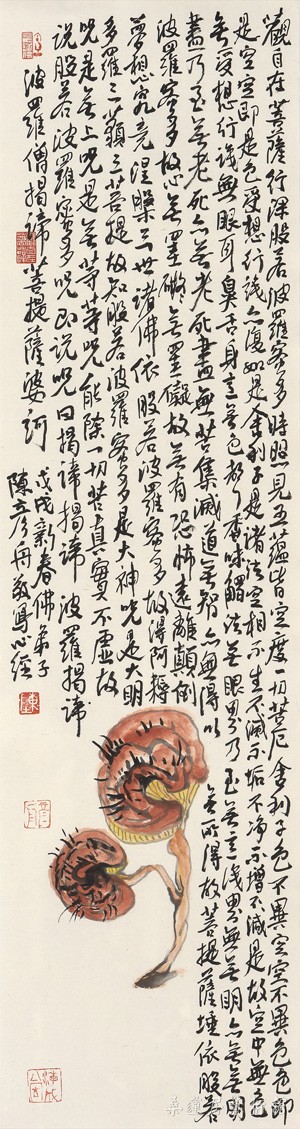 觀自在菩薩行深般若波羅蜜多時照見五蘊皆空度一切苦厄舍利子色不異空空不異色色即
是空空即是色受想行識亦復如是舍利子是諸法空相不生不滅不垢不淨不增不減是故空中無色
無受想行識無眼耳鼻舌身意無色聲香味觸法無眼界乃至無意識界無無明亦無無明
盡乃至無老死亦無老死盡無苦集滅道無智亦無得以無所得故菩提薩埵依般若
波羅蜜多故心無罣礙無罣礙故無有恐怖遠離顛倒
夢想究竟涅槃三世諸佛依般若波羅蜜多故得阿耨
多羅三藐三菩提故知般若波羅蜜多是大神咒是大明
咒是無上咒是無等等咒能除一切苦真實不虛故
說般若波羅蜜多咒即說咒曰揭諦揭諦波羅揭諦
波羅僧揭諦菩提薩婆訶
戊戌新春佛弟子
陳彥丹敬寫心經